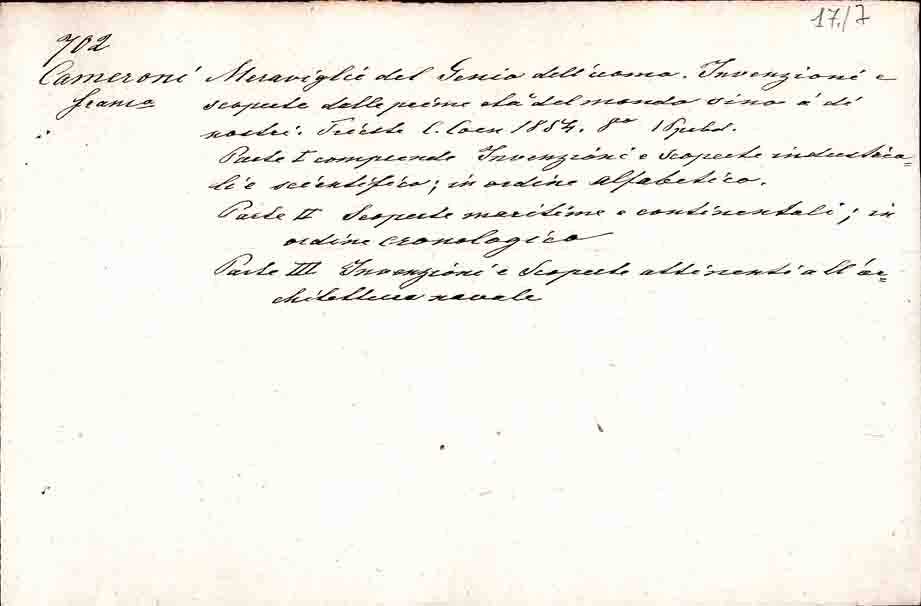 17./7
702
Cameroni Meraviglie del Genio dell'uomo. Invenzioni e
Franco scoperte delle prime età del mondo sino a dì
nostri. Trieste C. Coen 1854. 8º 1
Parte I comprende Invenzioni e Scoperte industria=
li e scientifico; in ordine alfabetico.
Parte II Scoperte maritime e continentali; in
ordine cronologico
Parte III Invenzioni e Scoperte attinenti all'ar=
chitettura navale